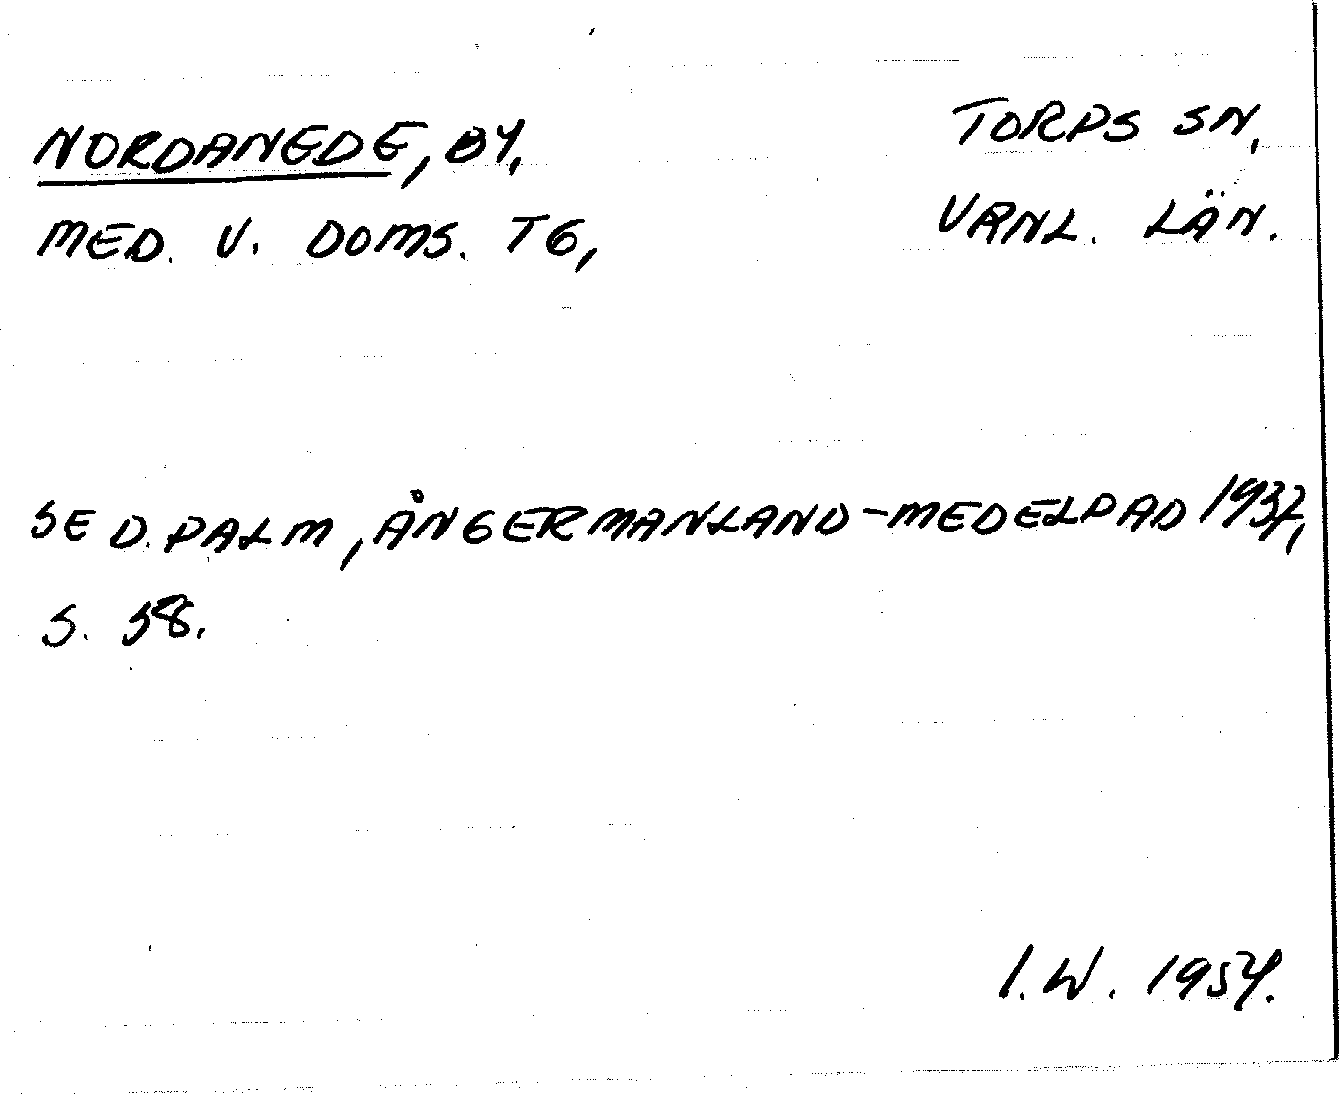 NORDANEDE, BY,
TORPS SN,
MED. V. DOMS. TG,
VRNL. LÄN.
SE D. PALM, ÅNGERMANLAND-MEDELPAD 1937,
S. 38.
I.W. 1954.